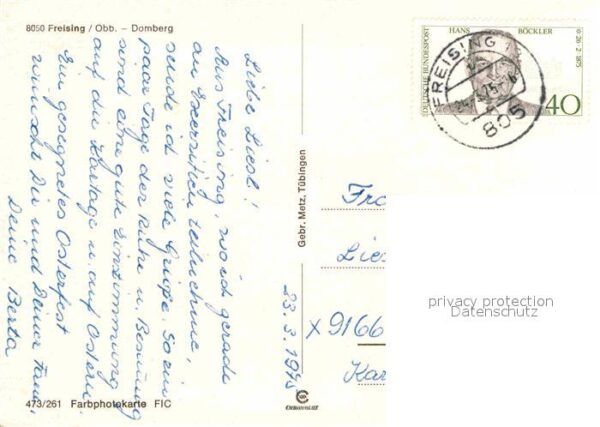 8050 Freising / Obb. – Domberg
Liebe Liesl!
Aus Freising, wo ich gerade
an Exerzitien teilnehme,
sende ich viele Grüße. So ein
paar Tage der Ruhe u. Besinnung
sind eine gute Einstimmung
auf die Kartage u. auf Ostern.
Ein gesegnetes Osterfest
wünscht Dir und Deiner Fam.
Deine Berta
23.3.1975
473/261 Farbphotokarte FIC
Gebr. Metz, Tübingen
CHROMOLUX
DEUTSCHE BUNDESPOST
HANS BÖCKLER
26·2·1875
40
FREISING 1
805
Fra
Lies
x 9166
Kar
privacy protection
Datenschutz